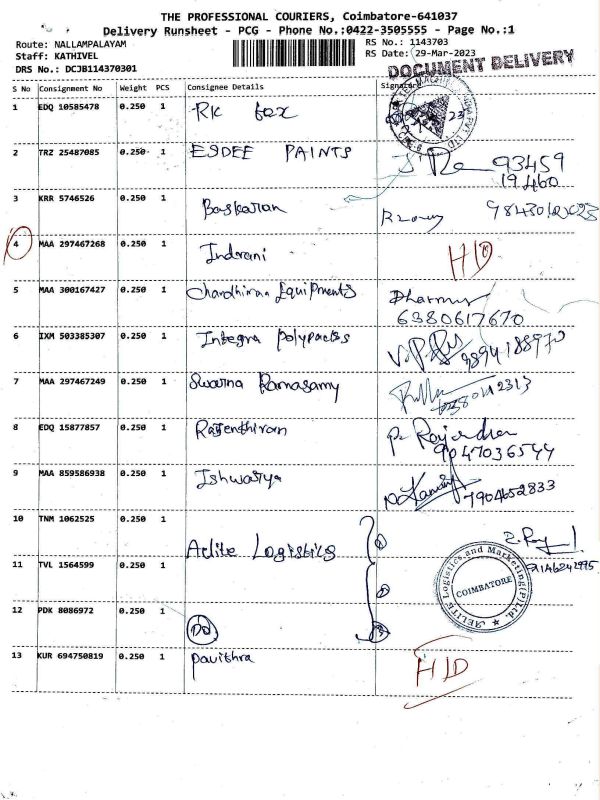 THE PROFESSIONAL COURIERS, Coimbatore-641037
Delivery Runsheet - PCG - Phone No.:0422-3505555 - Page No.:1
Route: NALLAMPALAYAM
Staff: KATHIVEL
DRS No.: DCJB114370301
RS No.: 1143703
RS Date: 29-Mar-2023
DOCUMENT DELIVERY
S No Consignment No Weight PCS Consignee Details Signature
1 EDQ 10585478 0.250 1 RK fax
2 TRZ 25487085 0.250 1 ESDEE PAINTS 93459
19460
3 KRR 5746526 0.250 1 Baskaran
4 MAA 297467268 0.250 1 Indrani HD
5 MAA 300167427 0.250 1 Chandhirma Equipments
6380617670
6 IXM 503385307 0.250 1 Integra Polypacks 9894188970
7 MAA 297467249 0.250 1 Swarna Ramasamy
8 EDQ 15877857 0.250 1 Rajenthiran
9047036544
9 MAA 859586938 0.250 1 Ishwarya 7904652833
10 TNM 1062525 0.250 1
Aelite Logistics
11 TVL 1564599 0.250 1
Aelite Logistics and Marketing(P)Ltd.
COIMBATORE
12 PDK 8086972 0.250 1
DO
13 KUR 694750819 0.250 1 Pavithra HD